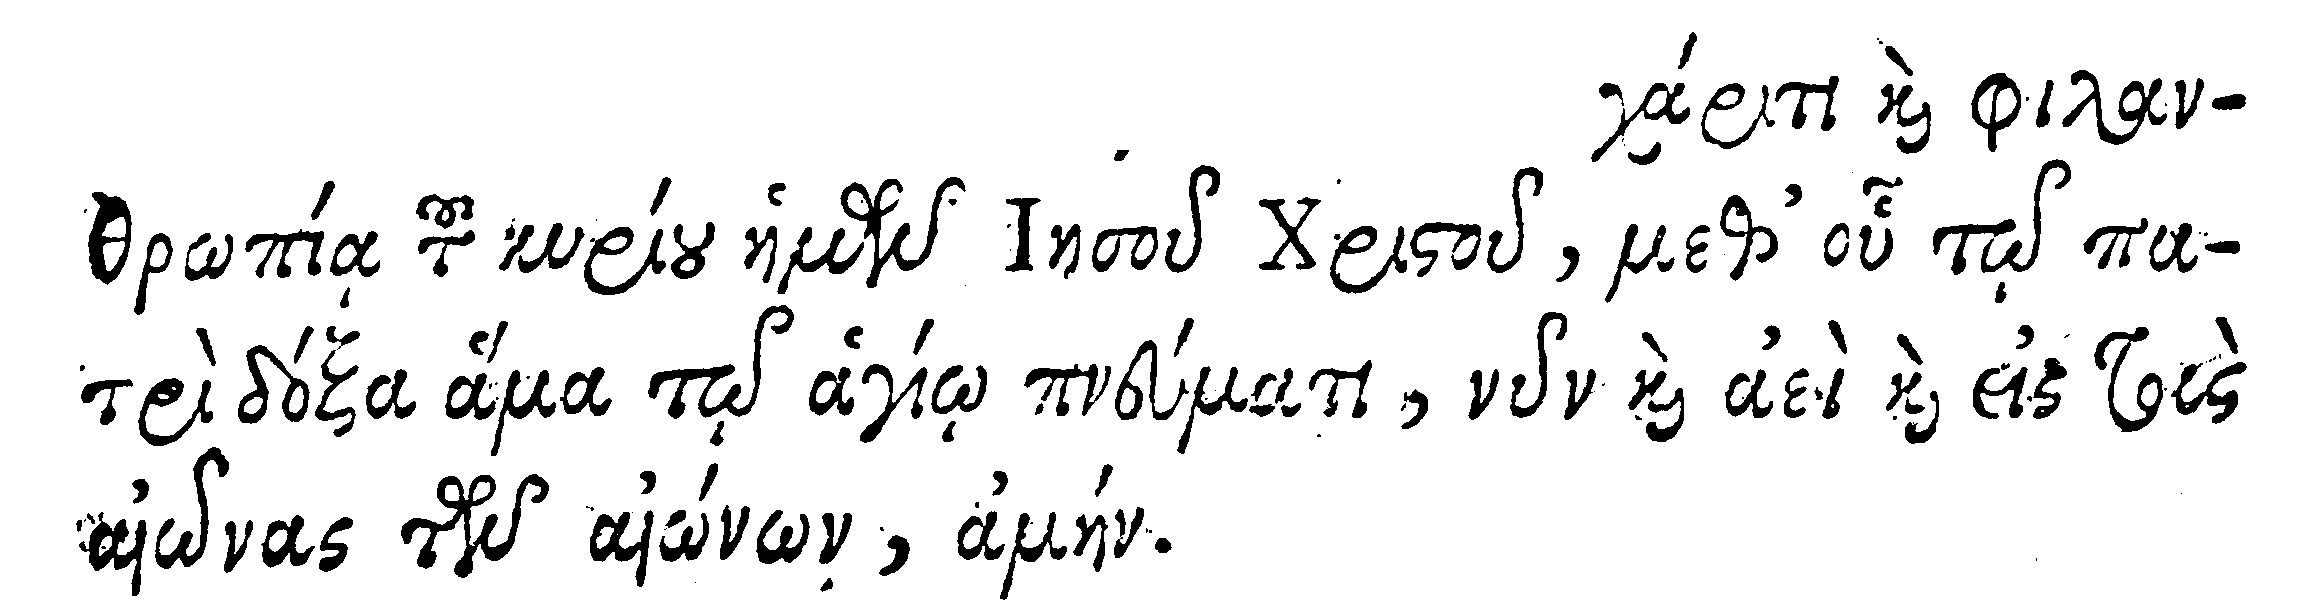 χάριτι ϗ̀ φιλαν-
θρωπίᾳ τοῦ κυρίου ἡμῶν Ἰησοῦ Χριστοῦ, μεθ' οὗ τῷ πα-
τρὶ δόξα ἅμα τῷ ἁγίῳ πνεύματι, νῦν ϗ̀ ἀεὶ ϗ̀ εἰς τοὺς
αἰῶνας τῶν αἰώνων, ἀμήν.